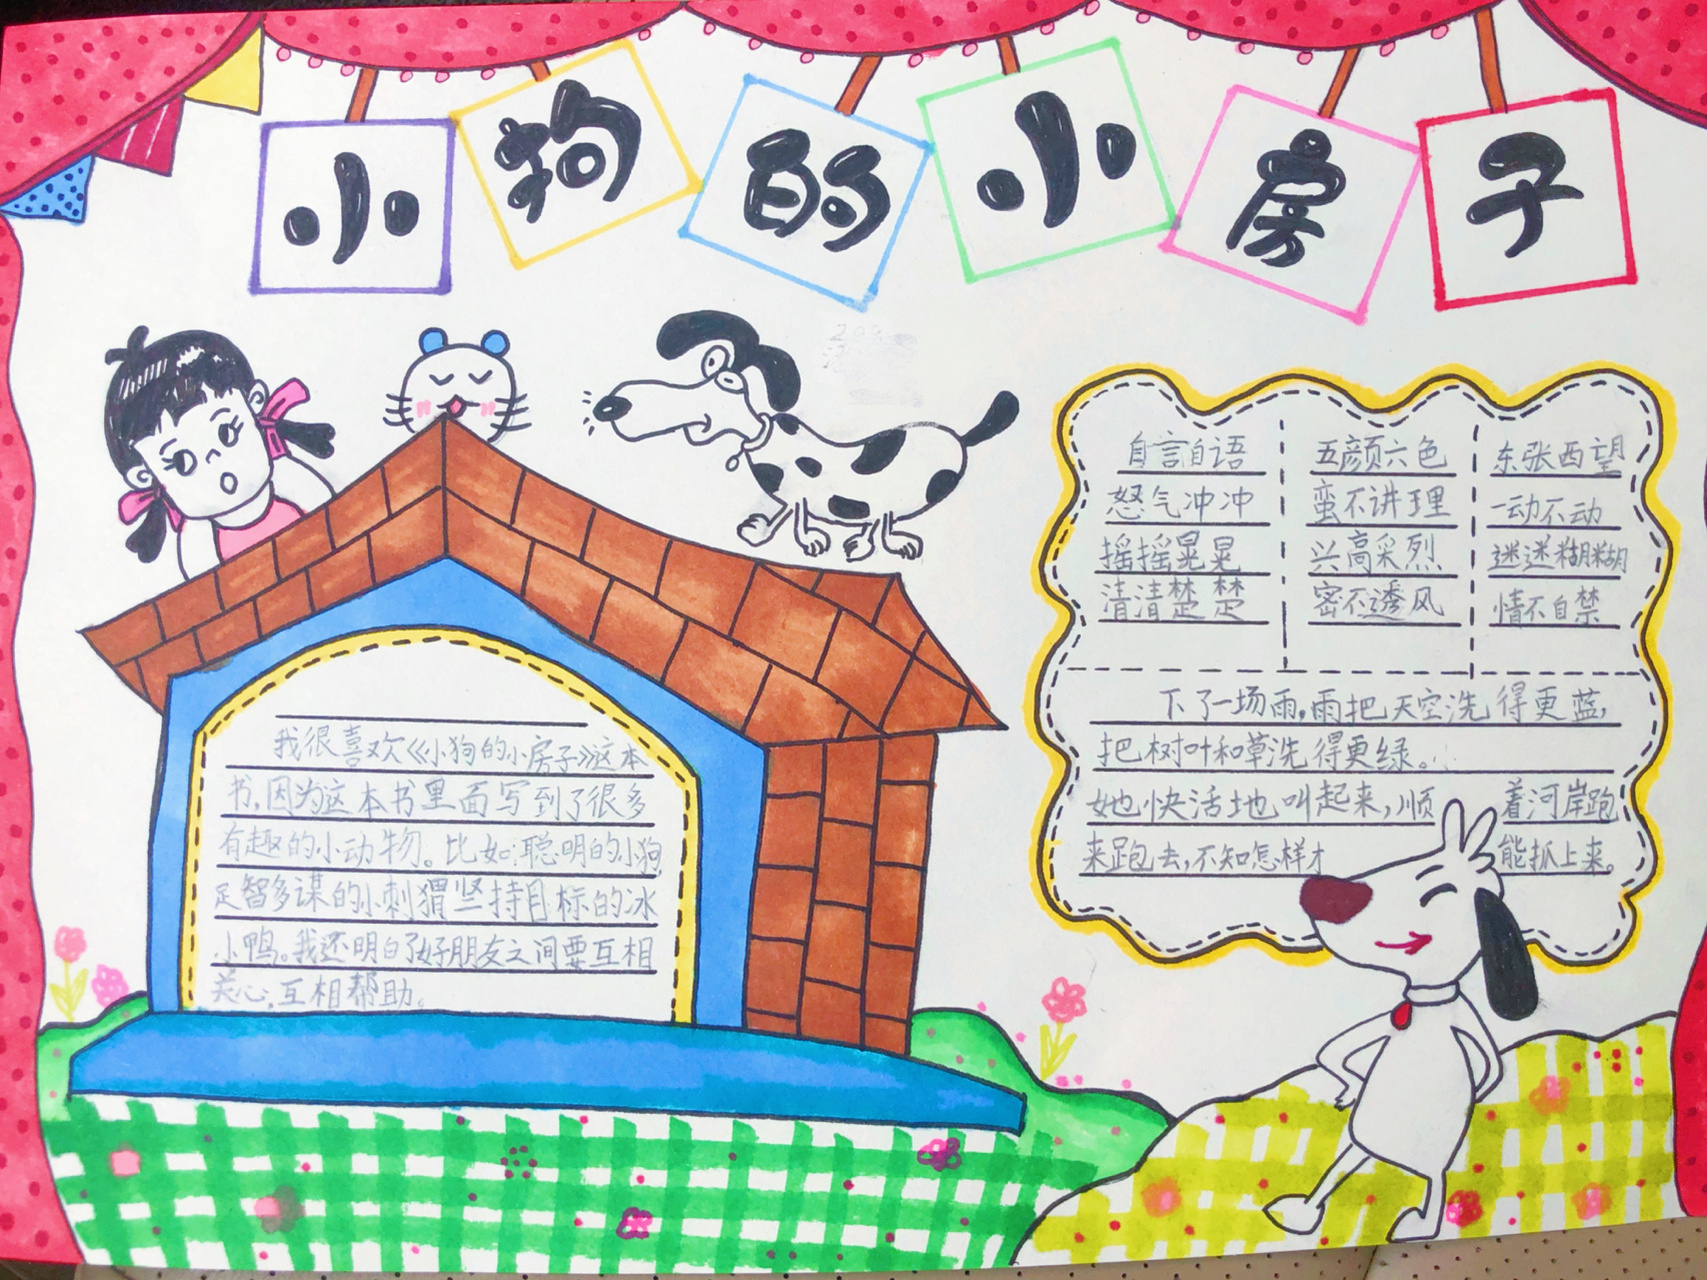 小狗的小房子
自言自语 五颜六色 东张西望
怒气冲冲 蛮不讲理 一动不动
摇摇晃晃 兴高采烈 迷迷糊糊
清清楚楚 密不透风 情不自禁
下了一场雨,雨把天空洗得更蓝,
把树叶和草洗得更绿。
她快活地叫起来,顺着河岸跑
来跑去,不知怎样才能抓上来。
我很喜欢《小狗的小房子》这本
书,因为这本书里面写到了很多
有趣的小动物。比如:聪明的小狗
足智多谋的小刺猬坚持目标的冰
小鸭。我还明白了好朋友之间要互相
关心,互相帮助。